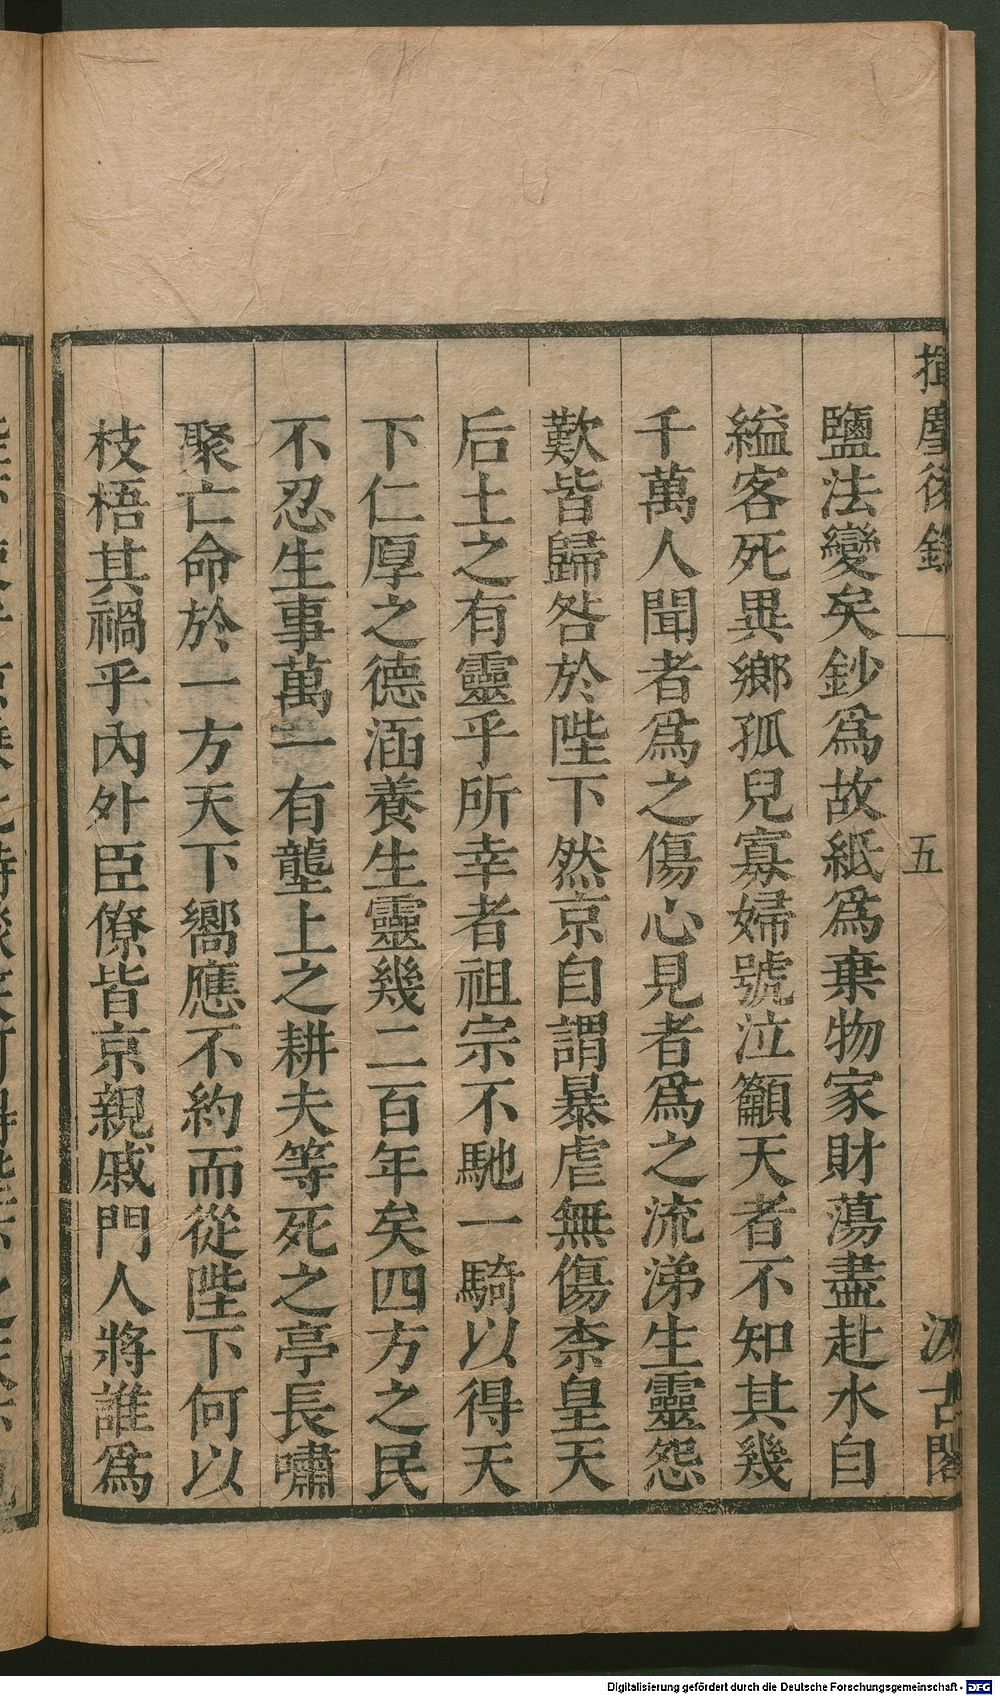 揮麈後錄
五
汲古閣
鹽法變矣鈔爲故紙爲棄物家財蕩盡赴水自
縊客死異鄉孤兒寡婦號泣籲天者不知其幾
千萬人聞者爲之傷心見者爲之流涕生靈怨
歎皆歸咎於陛下然京自謂暴虐無傷柰皇天
后土之有靈乎所幸者祖宗不馳一騎以得天
下仁厚之德涵養生靈幾二百年矣四方之民
不忍生事萬一有壟上之耕夫等死之亭長嘯
聚亡命於一方天下嚮應不約而從陛下何以
枝梧其禍乎內外臣僚皆京親戚門人將誰爲
Digitalisierung gefördert durch die Deutsche Forschungsgemeinschaft - DFG